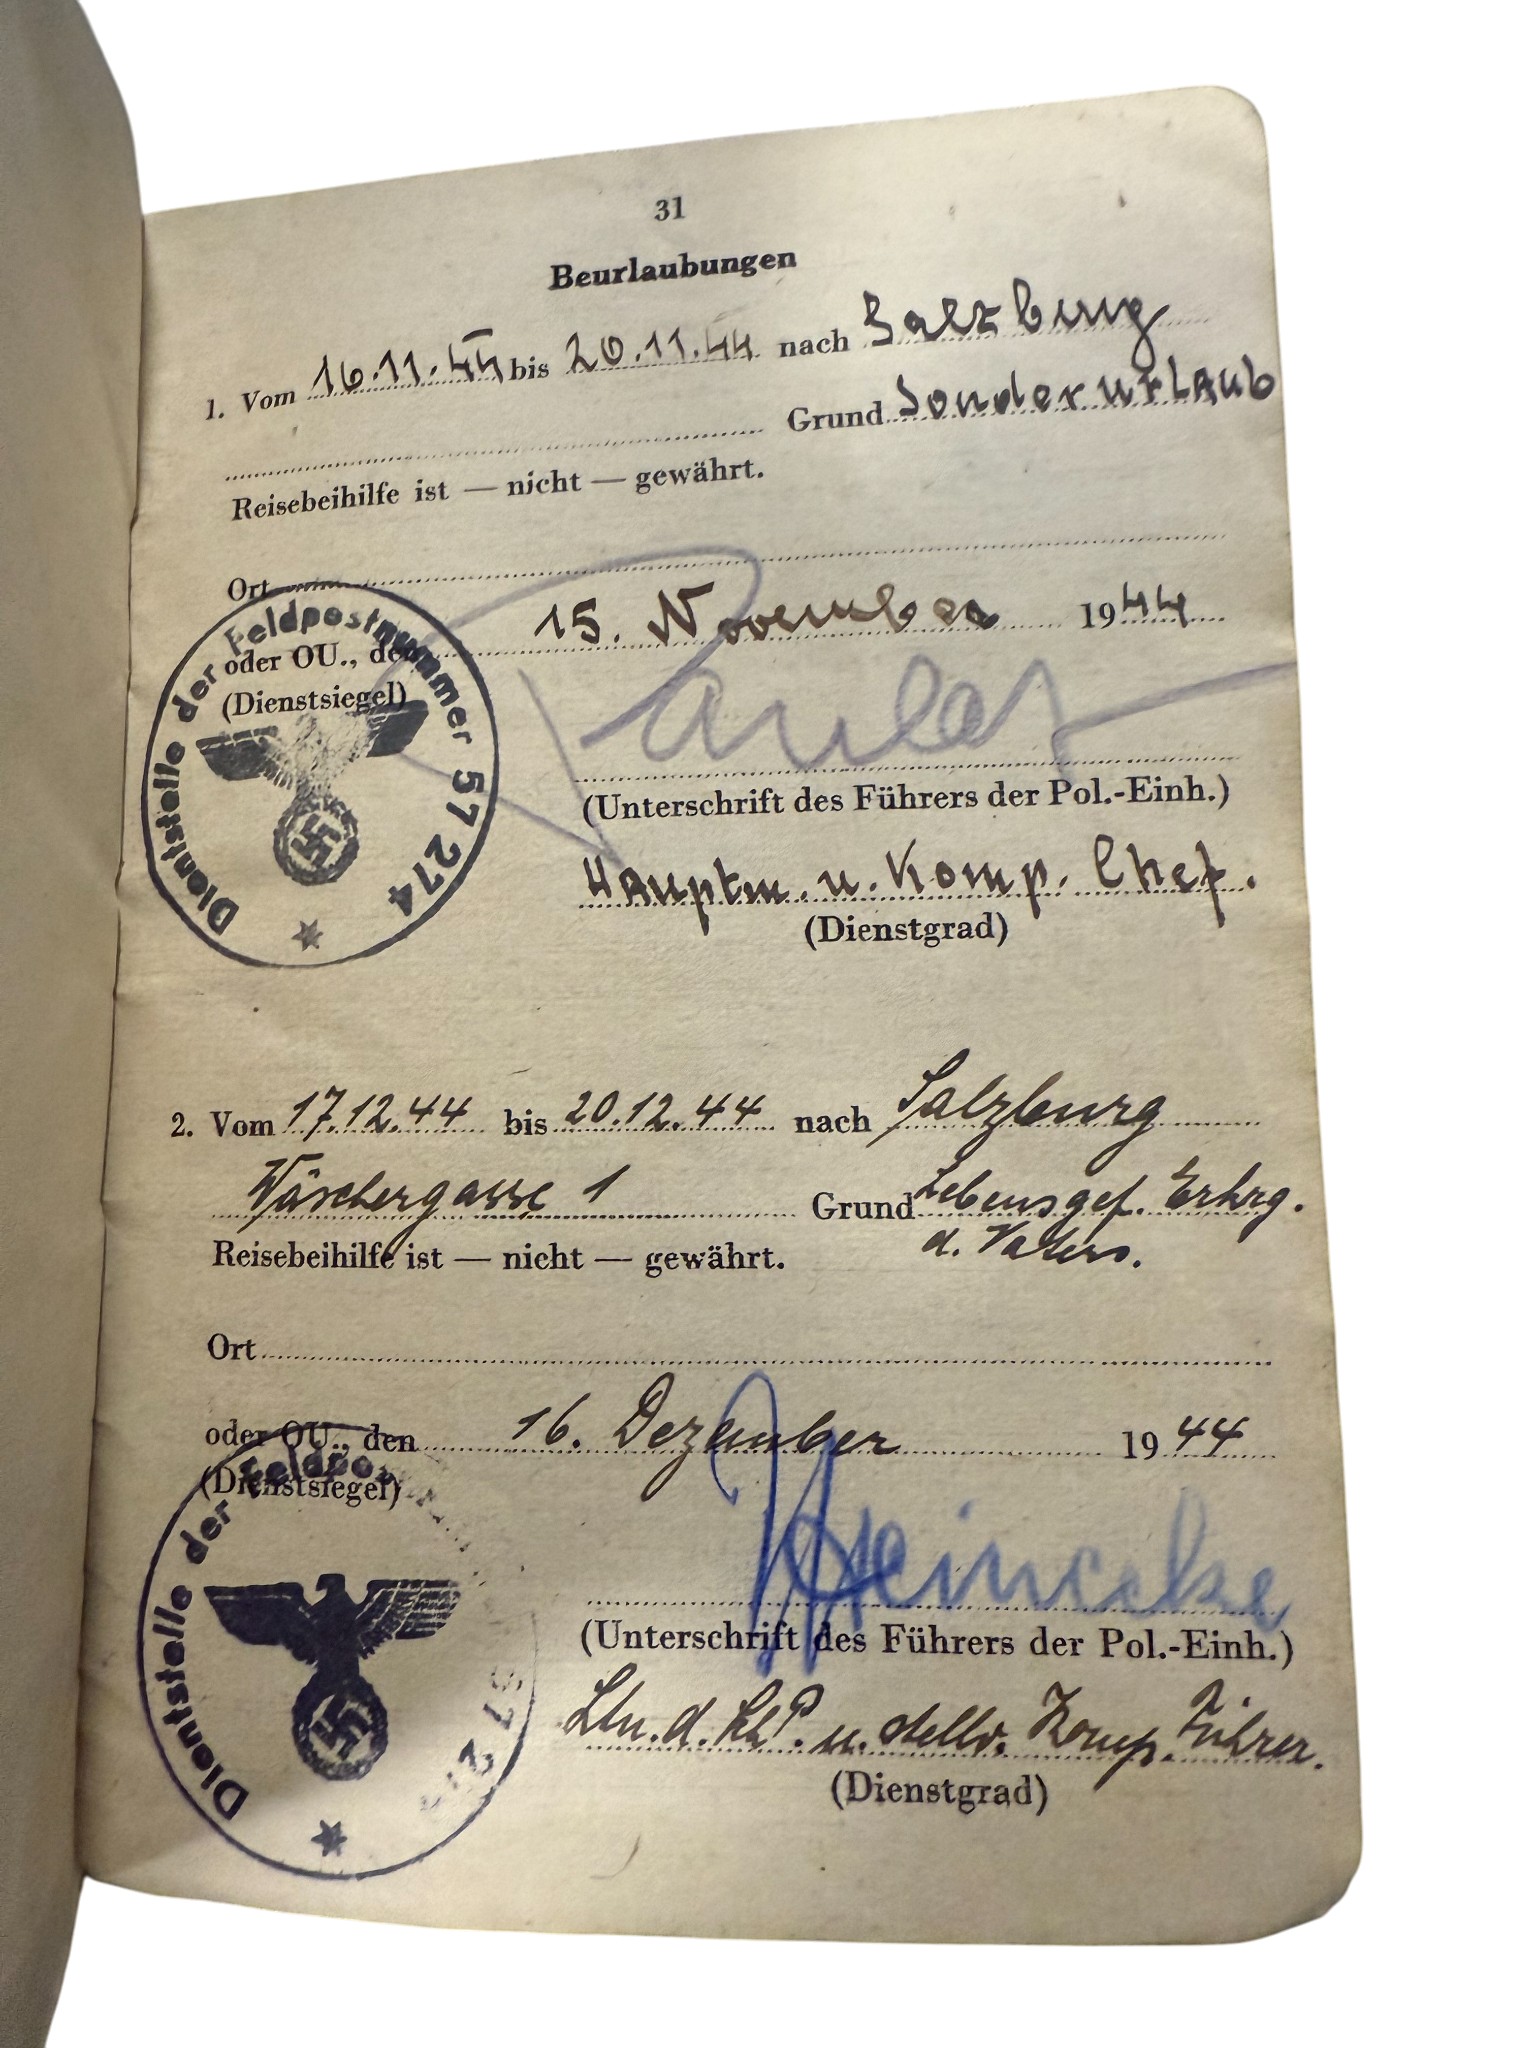 31
Beurlaubungen
1. Vom 16.11.44 bis 20.11.44 nach Salzburg
Grund Sonderurlaub
Reisebeihilfe ist — nicht — gewährt.
Ort
oder OU., den 15. November 1944
(Dienstsiegel)
Dienststelle der Feldpostnummer 57 274
(Unterschrift des Führers der Pol.-Einh.)
Hauptm. u. Komp. Chef.
(Dienstgrad)
2. Vom 17.12.44 bis 20.12.44 nach Salzburg
Wäschergasse 1 Grund Lebensgef. Erkrg.
d. Vaters.
Reisebeihilfe ist — nicht — gewährt.
Ort
oder OU., den 16. Dezember 1944
(Dienstsiegel)
Dienststelle der Feldpo 57 2
Heincke
(Unterschrift des Führers der Pol.-Einh.)
Ltn. d. SchP. u. stellv. Komp. Führer.
(Dienstgrad)